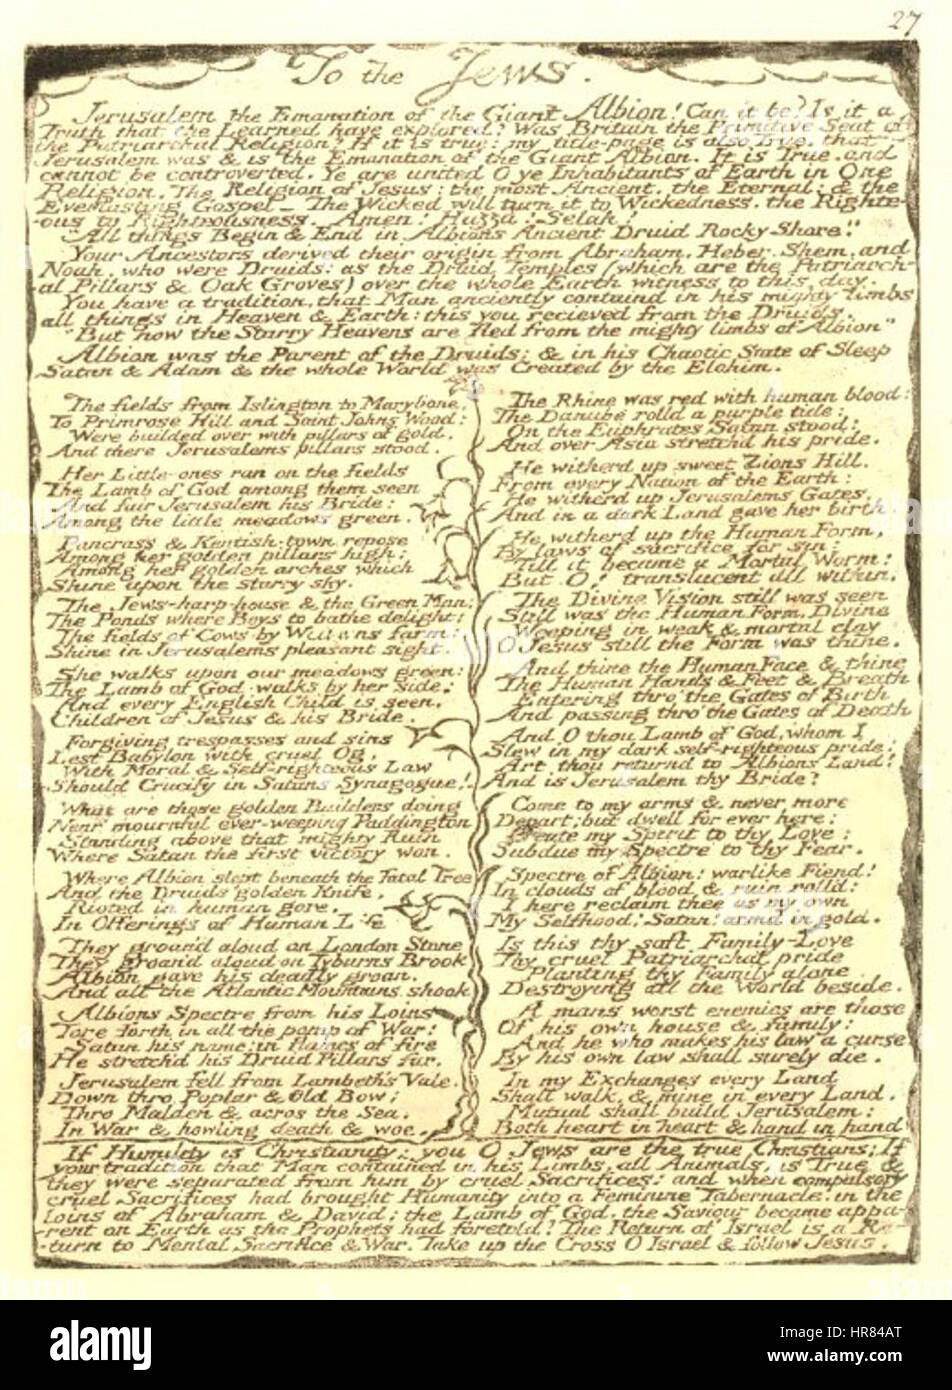 27
To the Jews.
Jerusalem the Emanation of the Giant Albion! Can it be? Is it a
Truth that the Learned have explored? Was Britain the Primitive Seat of
the Patriarchal Religion? If it is true: my title-page is also True, that
Jerusalem was & is the Emanation of the Giant Albion. It is True, and
cannot be controverted. Ye are united O ye Inhabitants of Earth in One
Religion. The Religion of Jesus: the most Ancient, the Eternal: & the
Everlasting Gospel_ The Wicked will turn it to Wickedness, the Righte-
-ous to Righteousness. Amen! Huzza! Selah!
"All things Begin & End in Albions Ancient Druid Rocky Shore."
Your Ancestors derived their origin from Abraham, Heber, Shem, and
Noah, who were Druids: as the Druid Temples (which are the Patriarch-
-al Pillars & Oak Groves) over the whole Earth witness to this day.
You have a tradition, that Man anciently containd in his mighty limbs
all things in Heaven & Earth: this you recieved from the Druids.
"But now the Starry Heavens are fled from the mighty limbs of Albion"
Albion was the Parent of the Druids; & in his Chaotic State of Sleep
Satan & Adam & the whole World was Created by the Elohim.
The fields from Islington to Marybone,
To Primrose Hill and Saint Johns Wood:
Were builded over with pillars of gold,
And there Jerusalems pillars stood.
Her Little-ones ran on the fields
The Lamb of God among them seen
And fair Jerusalem his Bride:
Among the little meadows green.
Pancrass & Kentish-town repose
Among her golden pillars high:
Among her golden arches which
Shine upon the starry sky.
The Jews-harp-house & the Green Man;
The Ponds where Boys to bathe delight:
The fields of Cows by Willans farm:
Shine in Jerusalems pleasant sight.
She walks upon our meadows green:
The Lamb of God walks by her side:
And every English Child is seen,
Children of Jesus & his Bride.
Forgiving trespasses and sins
Lest Babylon with cruel Og,
With Moral & Self-righteous Law
Should Crucify in Satans Synagogue!
What are those golden Builders doing
Near mournful ever-weeping Paddington
Standing above that mighty Ruin
Where Satan the first victory won.
Where Albion slept beneath the Fatal Tree
And the Druids golden Knife,
Rioted in human gore,
In Offerings of Human Life
They groand aloud on London Stone
They groand aloud on Tyburns Brook
Albion gave his deadly groan,
And all the Atlantic Mountains shook
Albions Spectre from his Loins
Tore forth in all the pomp of War:
Satan his name: in flames of fire
He stretch'd his Druid Pillars far.
Jerusalem fell from Lambeth's Vale,
Down thro Poplar & Old Bow;
Thro Malden & acros the Sea,
In War & howling death & woe.
The Rhine was red with human blood:
The Danube rolld a purple tide:
On the Euphrates Satan stood:
And over Asia stretch'd his pride.
He witherd up sweet Zions Hill,
From every Nation of the Earth:
He witherd up Jerusalems Gates,
And in a dark Land gave her birth.
He witherd up the Human Form,
By laws of sacrifice for sin:
Till it became a Mortal Worm:
But O! translucent all within.
The Divine Vision still was seen
Still was the Human Form, Divine
Weeping in weak & mortal clay
O Jesus still the Form was thine.
And thine the Human Face & thine
The Human Hands & Feet & Breath
Entering thro' the Gates of Birth
And passing thro' the Gates of Death
And O thou Lamb of God, whom I
Slew in my dark self-righteous pride:
Art thou returnd to Albions Land!
And is Jerusalem thy Bride?
Come to my arms & never more
Depart; but dwell for ever here:
Create my Spirit to thy Love:
Subdue my Spectre to thy Fear.
Spectre of Albion! warlike Fiend!
In clouds of blood & ruin roll'd:
I here reclaim thee as my own
My Selfhood! Satan! armd in gold.
Is this thy soft Family-Love
Thy cruel Patriarchal pride
Planting thy Family alone,
Destroying all the World beside.
A mans worst enemies are those
Of his own house & family:
And he who makes his law a curse
By his own law shall surely die.
In my Exchanges every Land
Shall walk, & mine in every Land,
Mutual shall build Jerusalem:
Both heart in heart & hand in hand
If Humility is Christianity; you O Jews are the true Christians; If
your tradition that Man contained in his Limbs, all Animals, is True &
they were separated from him by cruel Sacrifices: and when compulsory
cruel Sacrifices had brought Humanity into a Feminine Tabernacle, in the
loins of Abraham & David: the Lamb of God, the Saviour became appa-
-rent on Earth as the Prophets had foretold? The Return of Israel is a Re-
-turn to Mental Sacrifice & War. Take up the Cross O Israel & follow Jesus.
alamy
Image ID: HR84AT
www.alamy.com